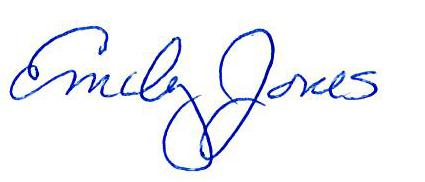 Emily Jones